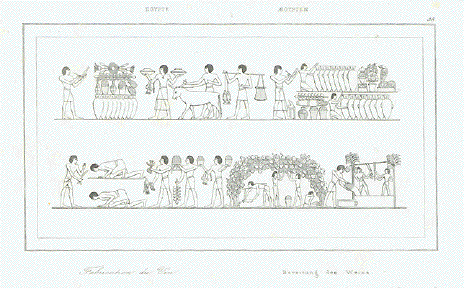 EGYPTE ÆGYPTEN
Fabrication du Vin Bereitung des Weins